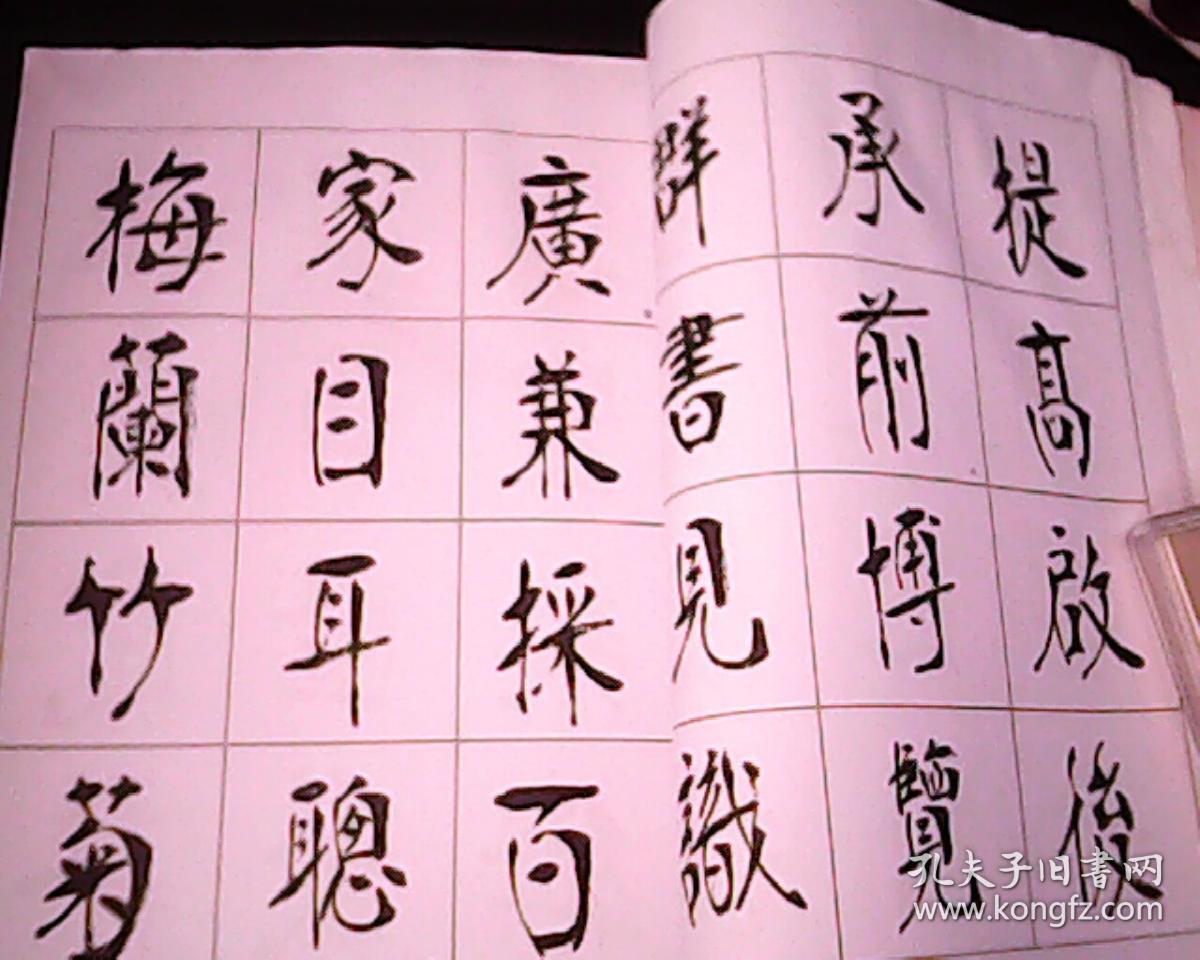 提高啟後
承前博覽
群書見識
廣兼採百
家目耳聰
梅蘭竹菊
孔夫子旧书网
www.kongfz.com